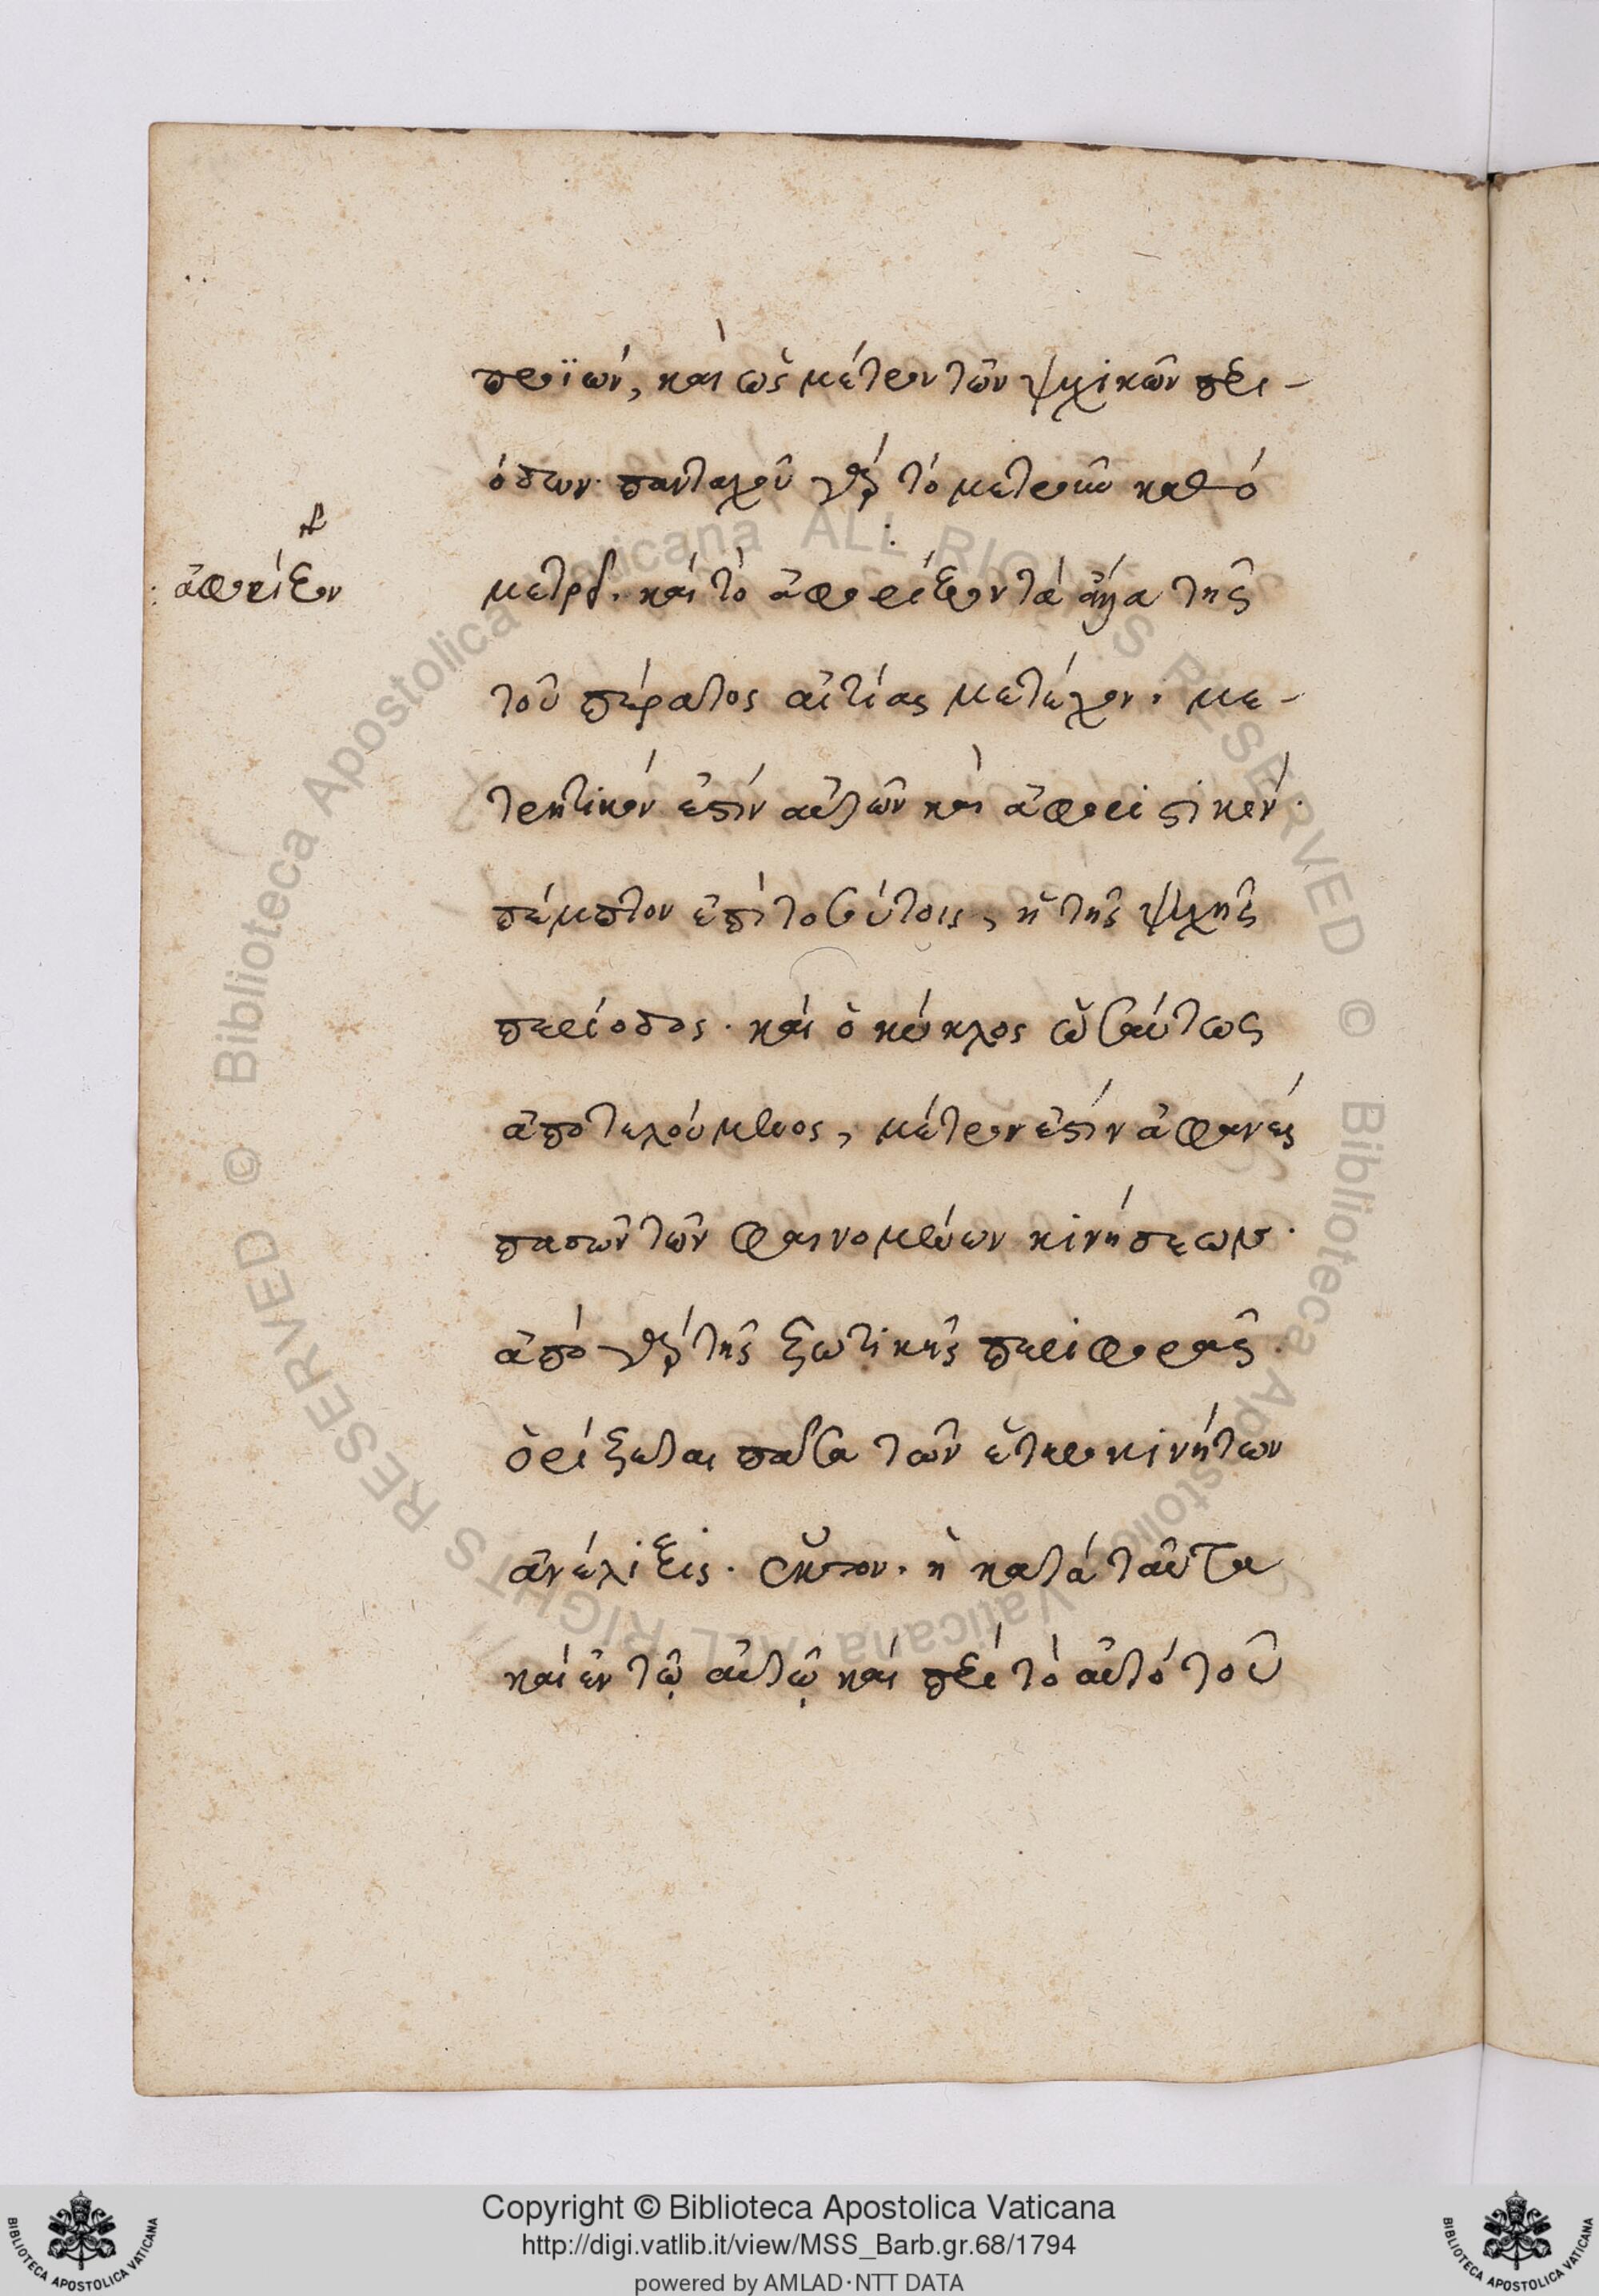 προϊὼν, καὶ ὡς μέτρον τῶν ψυχικῶν περι-
όδων· πανταχοῦ γὰρ τὸ μετροῦν καθὸ
μετρεῖ. καὶ τὸ ἀφορίζον τὰ ἄλλα τῆς
: ἀφορίζον
τοῦ πέρατος αἰτίας μετέχον. με-
τρητικόν ἐστὶν αὐτῶν καὶ ἀφοριστικόν·
πέμπτον ἐπὶ τούτοις, ἡ τῆς ψυχῆς
περίοδος· καὶ ὁ κύκλος ὡσαύτως
ἀποτελούμενος, μέτρον ἐστὶν ἀφανὲς
πασῶν τῶν φαινομένων κινήσεων·
ἀπὸ γὰρ τῆς ζωτικῆς περιφορᾶς
ὁρίζεται πᾶσα τῶν ἑτεροκινήτων
ἀνέλιξις. ἕκτον. ἡ κατὰ ταῦτα
καὶ ἐν τῷ αὐτῷ καὶ περὶ τὸ αὐτὸ τοῦ
© Biblioteca Apostolica Vaticana ALL RIGHTS RESERVED © Biblioteca Apostolica Vaticana ALL RIGHTS RESERVED
Copyright © Biblioteca Apostolica Vaticana
http://digi.vatlib.it/view/MSS_Barb.gr.68/1794
powered by AMLAD·NTT DATA
BIBLIOTECA APOSTOLICA VATICANA
BIBLIOTECA APOSTOLICA VATICANA